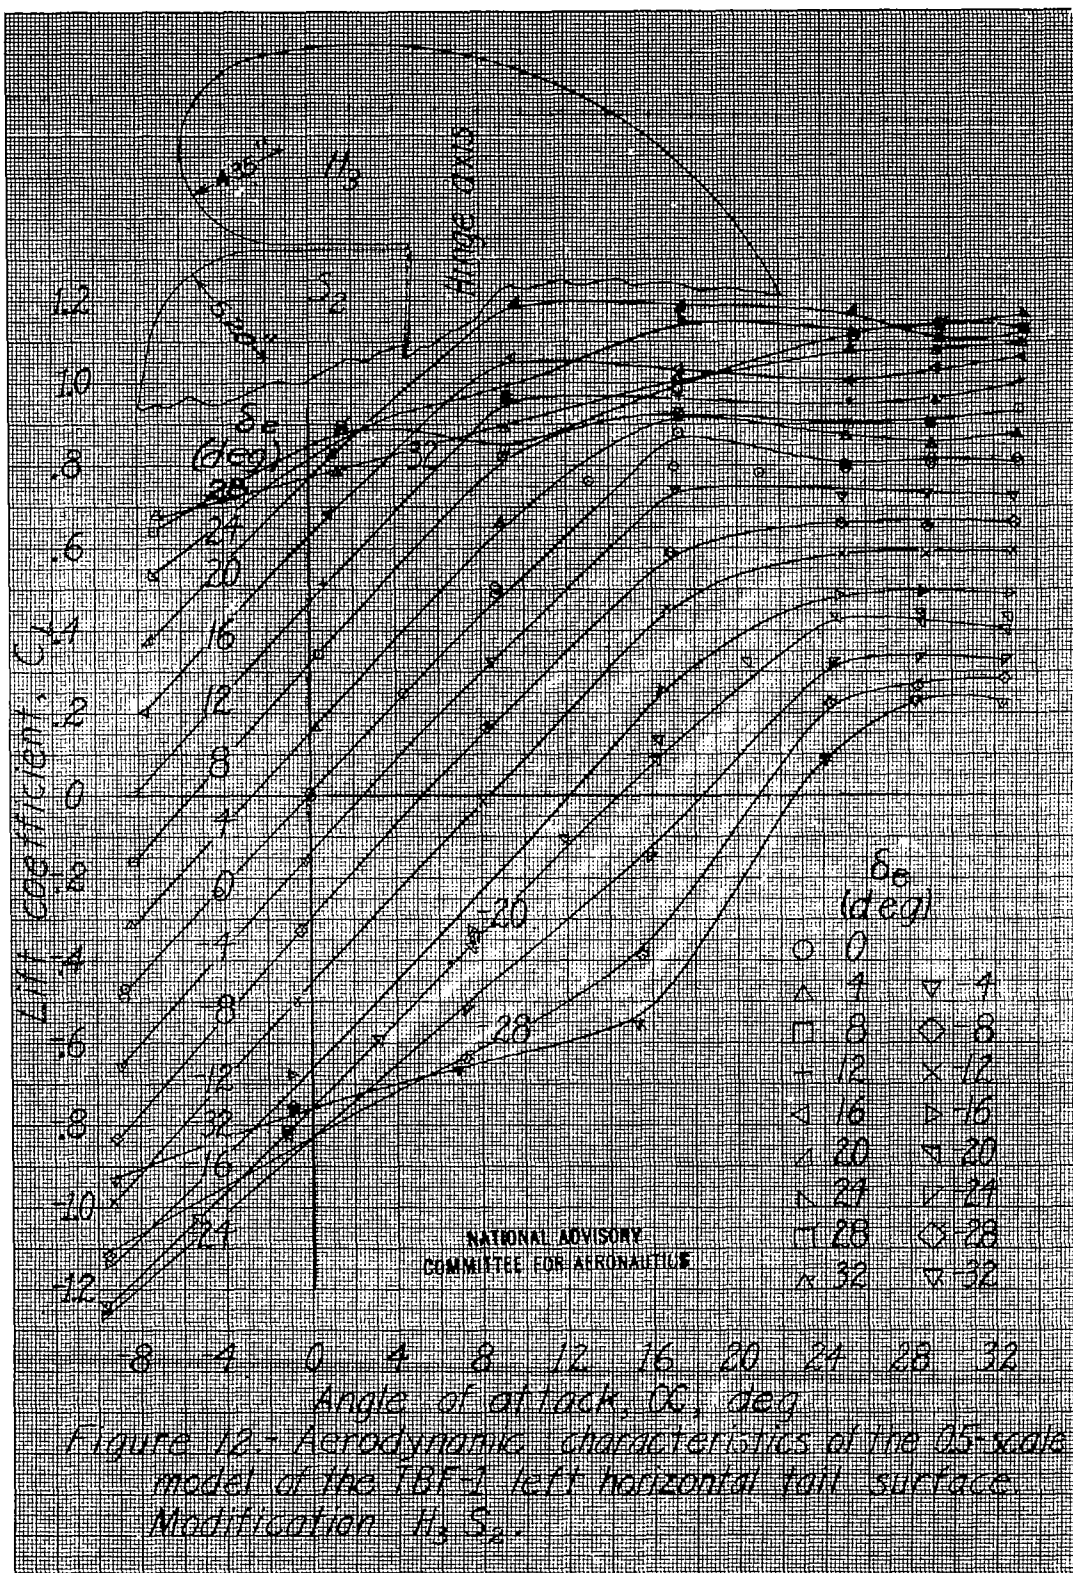 4.35"
H3
Hinge axis
S2
5.20"
1.2
1.0
.8
.6
.4
.2
0
-.2
-.4
-.6
-.8
-1.0
-1.2
Lift coefficient, CL
δe
(deg)
28
24
20
16
12
8
4
0
-4
-8
-12
-32
-16
-24
32
-20
-28
δe
(deg)
0
4 -4
8 -8
12 -12
16 -16
20 -20
24 -24
28 -28
32 -32
NATIONAL ADVISORY
COMMITTEE FOR AERONAUTICS
-8 -4 0 4 8 12 16 20 24 28 32
Angle of attack, α, deg
Figure 12.- Aerodynamic characteristics of the 0.5-scale
model of the TBF-1 left horizontal tail surface.
Modification H3 S2.